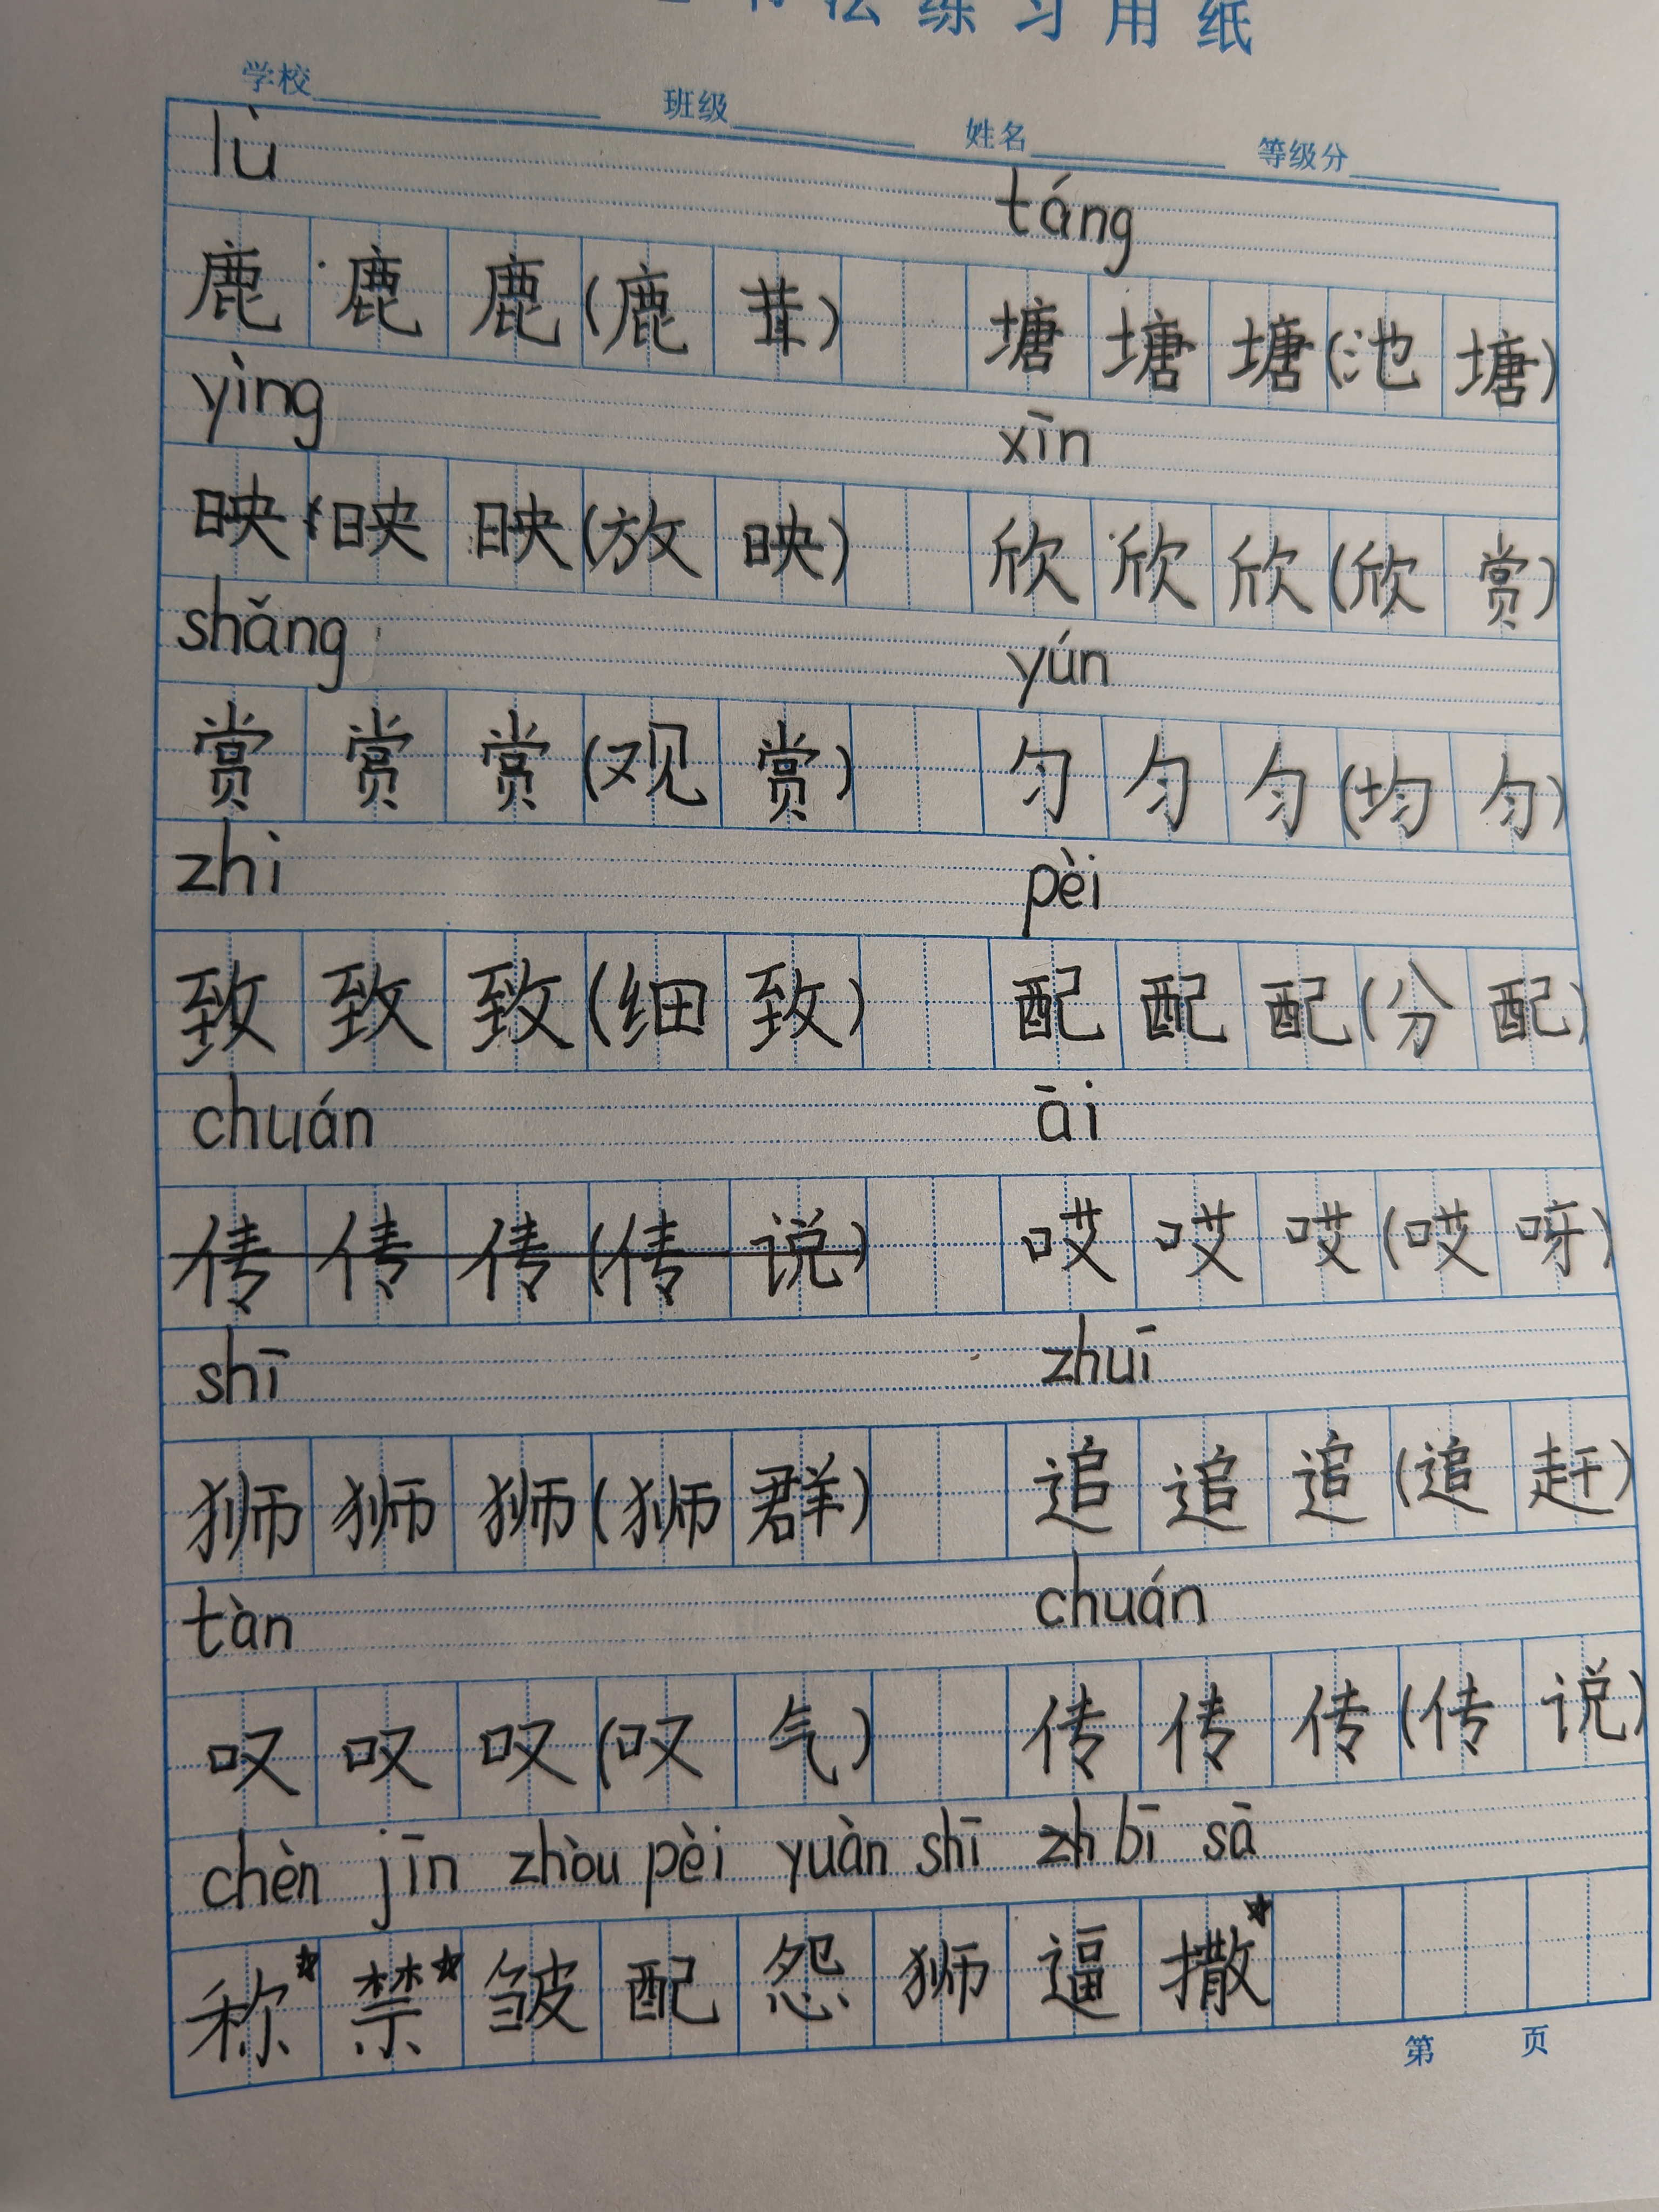 书法练习用纸
学校 班级 姓名 等级分
lù táng
鹿 鹿 鹿 (鹿 茸) 塘 塘 塘 (池 塘)
yìng xīn
映 映 映 (放 映) 欣 欣 欣 (欣 赏)
shǎng yún
赏 赏 赏 (观 赏) 匀 匀 匀 (均 匀)
zhi pèi
致 致 致 (细 致) 配 配 配 (分 配)
chuán āi
传 传 传 (传 说) 哎 哎 哎 (哎 呀)
shī zhuī
狮 狮 狮 (狮 群) 追 追 追 (追 赶)
tàn chuán
叹 叹 叹 (叹 气) 传 传 传 (传 说)
chèn jīn zhòu pèi yuàn shī zh bī sā
称* 禁* 皱 配 怨 狮 逼 撒*
第 页